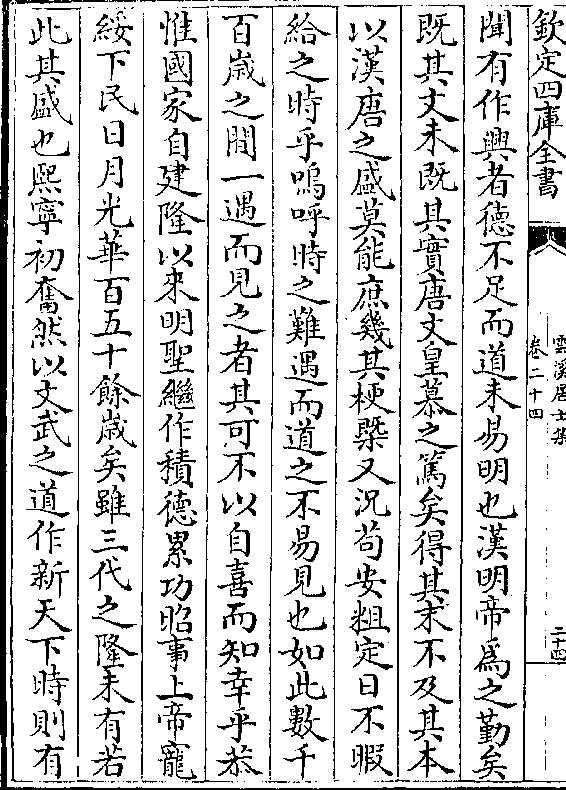 欽定四庫全書
雲溪居士集
卷二十四
二十四
聞有作興者德不足而道未易明也漢明帝為之勤矣
既其文未既其實唐文皇慕之篤矣得其末不及其本
以漢唐之盛莫能庶幾其梗槩又況茍安粗定日不暇
給之時乎嗚呼時之難遇而道之不易見也如此數千
百嵗之間一遇而見之者其可不以自喜而知幸乎恭
惟國家自建隆以來明聖繼作積德累功昭事上帝寵
綏下民日月光華百五十餘嵗矣雖三代之隆未有若
此其盛也熙寧初奮然以文武之道作新天下時則有